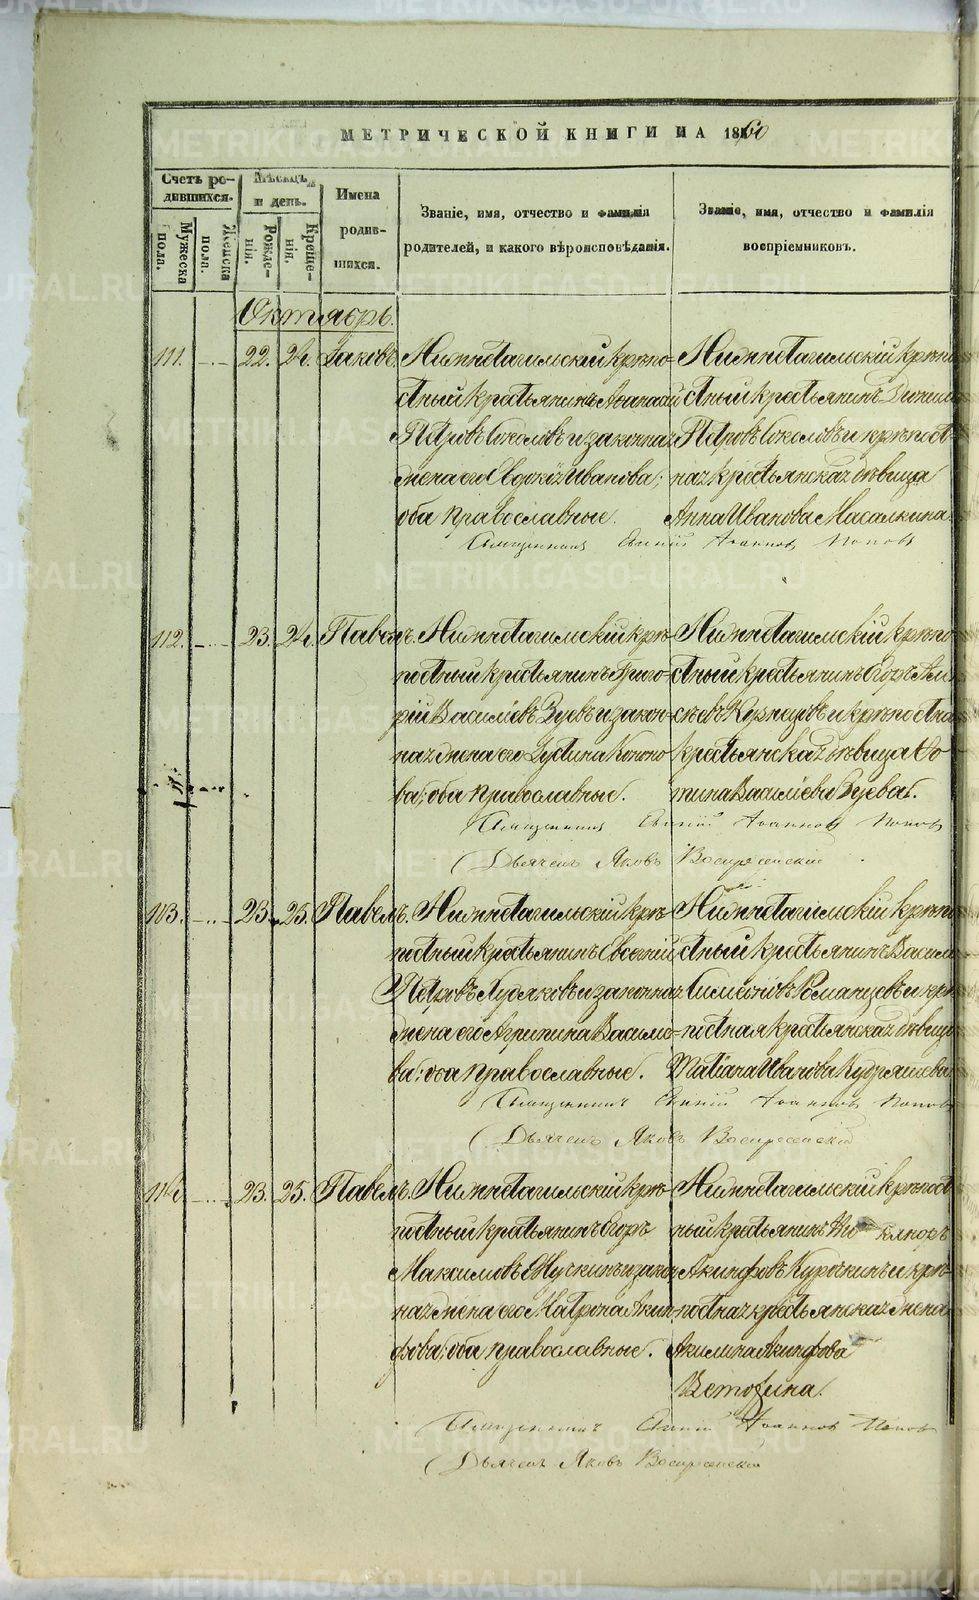 МЕТРИЧЕСКОЙ КНИГИ НА 1860
Счетъ ро-
дившихся.
Мужеска пола.
Женска пола.
Мѣсяцъ
и день.
Рожде-
нія.
Креще-
нія.
Имена
родив-
шихся.
Званіе, имя, отчество и фамилія
родителей, и какого вѣроисповѣданія.
Званіе, имя, отчество и фамилія
воспріемниковъ.
Октябрь.
111. 22. 24. Іаковъ.
Нижнетагильскій крѣпо-
стный крестьянинъ Афанасій
Петровъ Соколовъ и законная
жена его Евдокія Иванова;
оба православные.
Нижнетагильскій крѣпо
стный крестьянинъ
Петровъ Соколовъ и крѣпост
ная крестьянская дѣвица
Анна Иванова Масалкина.
Священникъ Іоаннъ Поповъ
112. 23. 24. Павелъ.
Нижнетагильскій крѣ-
постный крестьянинъ Григо-
рій Василіевъ Зуевъ и закон-
ная жена его Іустина Конono
ва; оба православные.
Нижнетагильскій крѣпо
стный крестьянинъ Егоръ Але
ксѣевъ Кузнецовъ и крѣпостна
крестьянская дѣвица Фо
тина Василіева Зуева.
Священникъ Іоаннъ Поповъ
Дьячекъ Яковъ Воскресенскій
103. 23. 25. Павелъ.
Нижнетагильскій крѣ-
постный крестьянинъ Евсевій
Петровъ Худяковъ и законная
жена его Агрипина Василье-
ва; оба православные.
Нижнетагильскій крѣпо
стный крестьянинъ Васили
Симеоновъ Романцевъ и крѣ
постная крестьянская дѣвица
Татіана Иванова Кудряшева.
Священникъ Іоаннъ Поповъ
Дьячекъ Яковъ Воскресенскій
114. 23. 25. Павелъ.
Нижнетагильскій крѣ-
постный крестьянинъ Егоръ
Максимовъ и закон
ная жена его Матрона Акин-
фова; оба православные.
Нижнетагильскій крѣпост
ный крестьянинъ
Акинфовъ Курочкинъ и крѣ-
постная крестьянская жена
Акилина Акинфова
Ветошкина.
Священникъ Іоаннъ Поповъ
Дьячекъ Яковъ Воскресенскій
METRIKI.GASO-URAL.RU